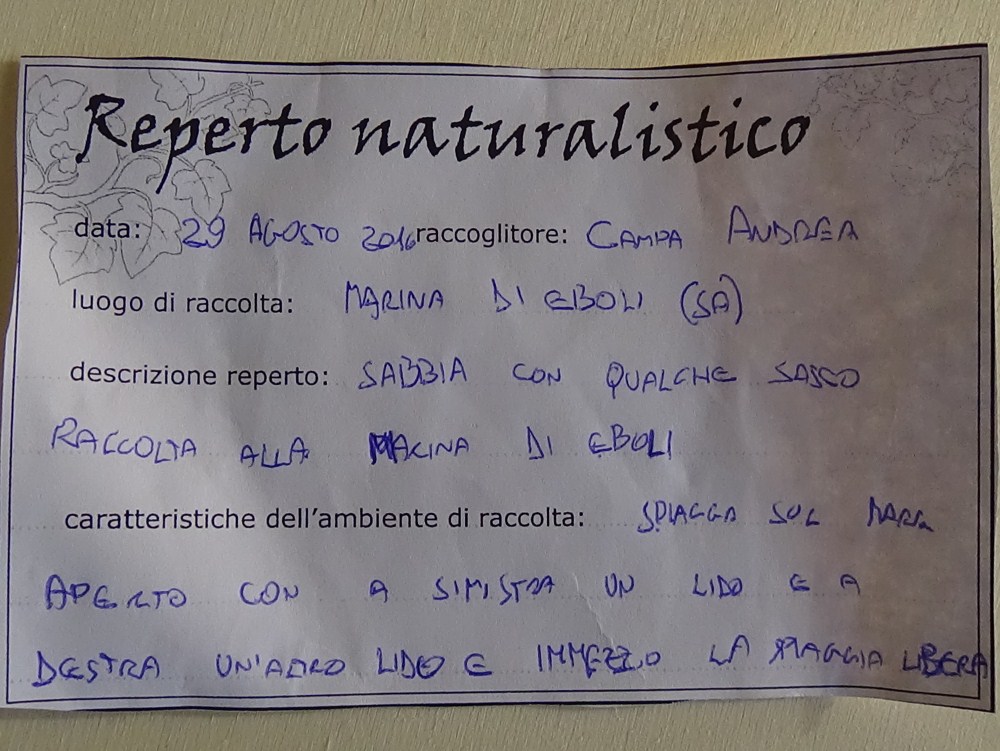 Reperto naturalistico
data: 29 AGOSTO 2016 raccoglitore: CAMPA ANDREA
luogo di raccolta: MARINA DI EBOLI (SA)
descrizione reperto: SABBIA CON QUALCHE SASSO
RACCOLTA ALLA MARINA DI EBOLI
caratteristiche dell'ambiente di raccolta: SPIAGGA SUL MARE
APERTO CON A SIMISTRA UN LIDO E A
DESTRA UN'ALTRO LIDO E IMMEZZO LA SPIAGGIA LIBERA